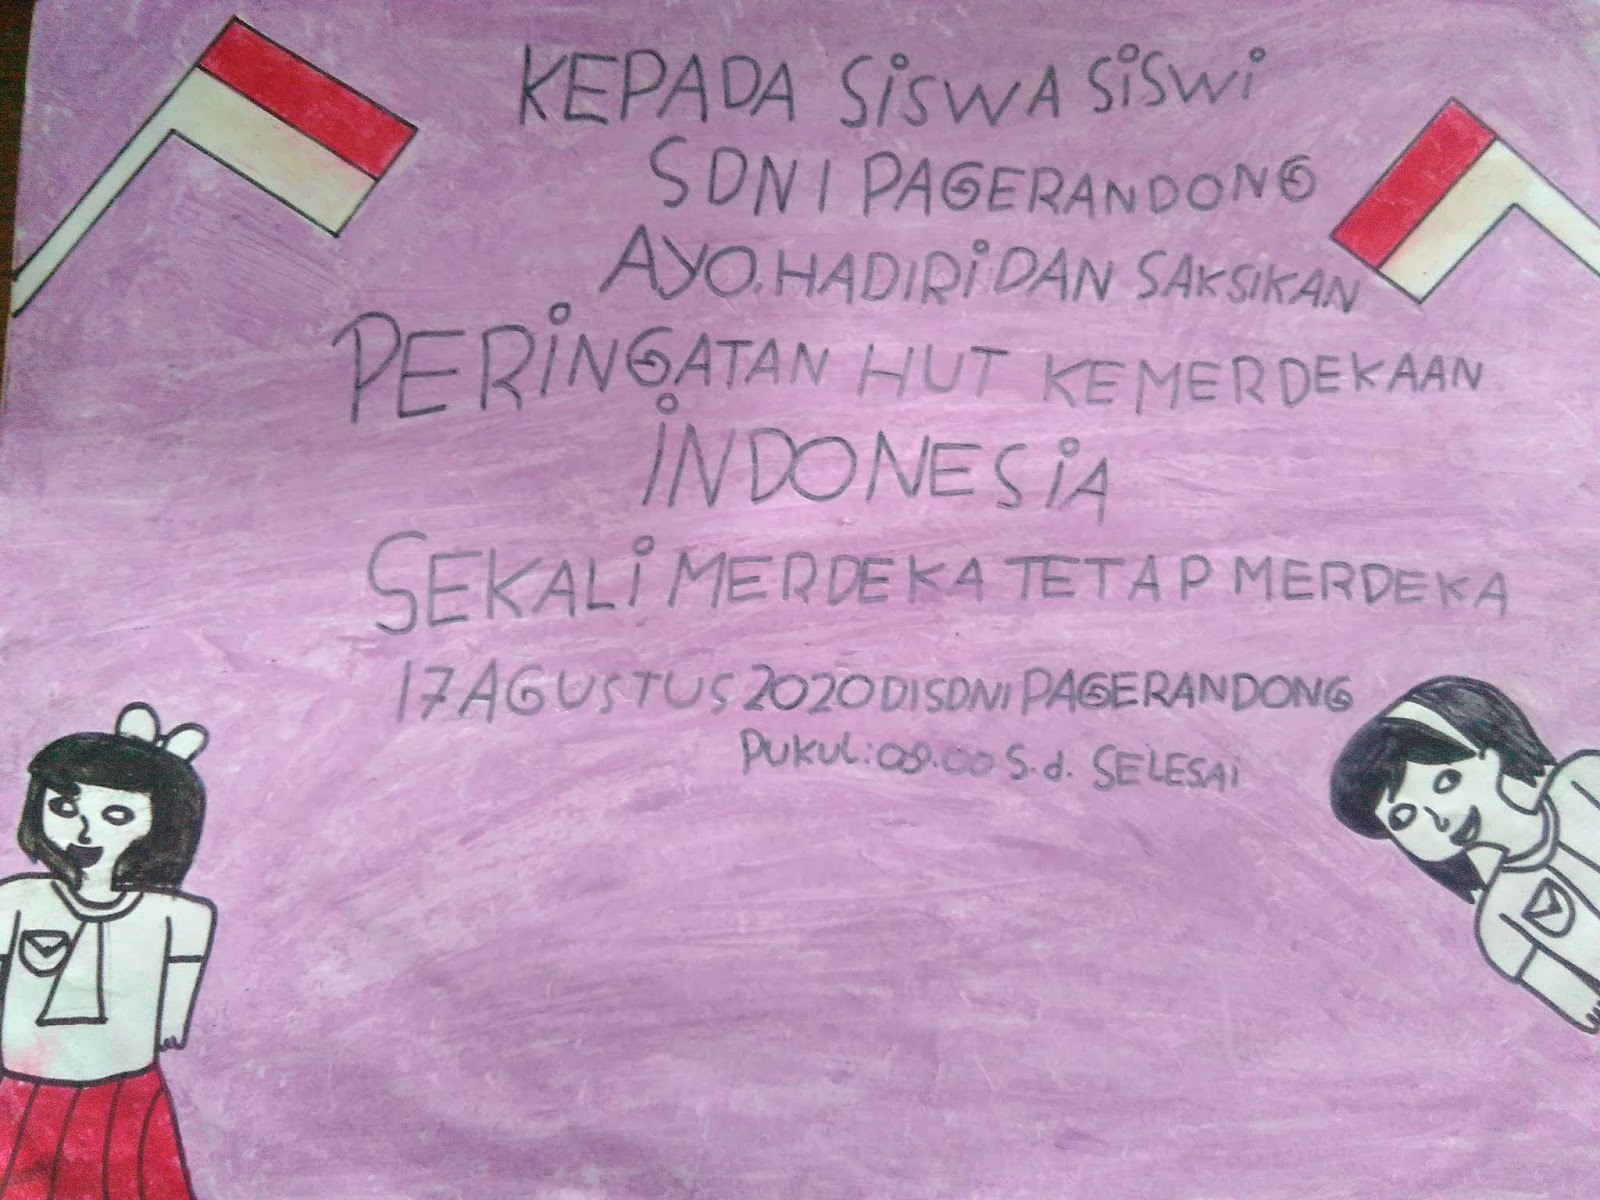 KEPADA SISWA SISWI
SDN 1 PAGERANDONG
AYO.HADIRI DAN SAKSIKAN
PERINGATAN HUT KEMERDEKAAN
INDONESIA
SEKALI MERDEKA TETAP MERDEKA
17 AGUSTUS 2020 DI SDN 1 PAGERANDONG
PUKUL: 08.00 S.d. SELESAI